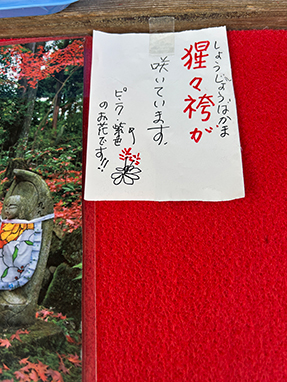 しょうじょうばかま
猩々袴が
咲いています。
ピンク、紫色
のお花です!!